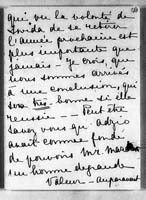 qui vu la volonté de
Sovida de se retirer
l'année prochaine est
plus importante que
jamais — Je crois, que
nous sommes arrivés
à une conclusion, qui
sera très bonne si elle
réussie — Peut être
savez vous que
avait comme fondé
de pouvoirs Mr
un homme de grande
valeur — auparavant